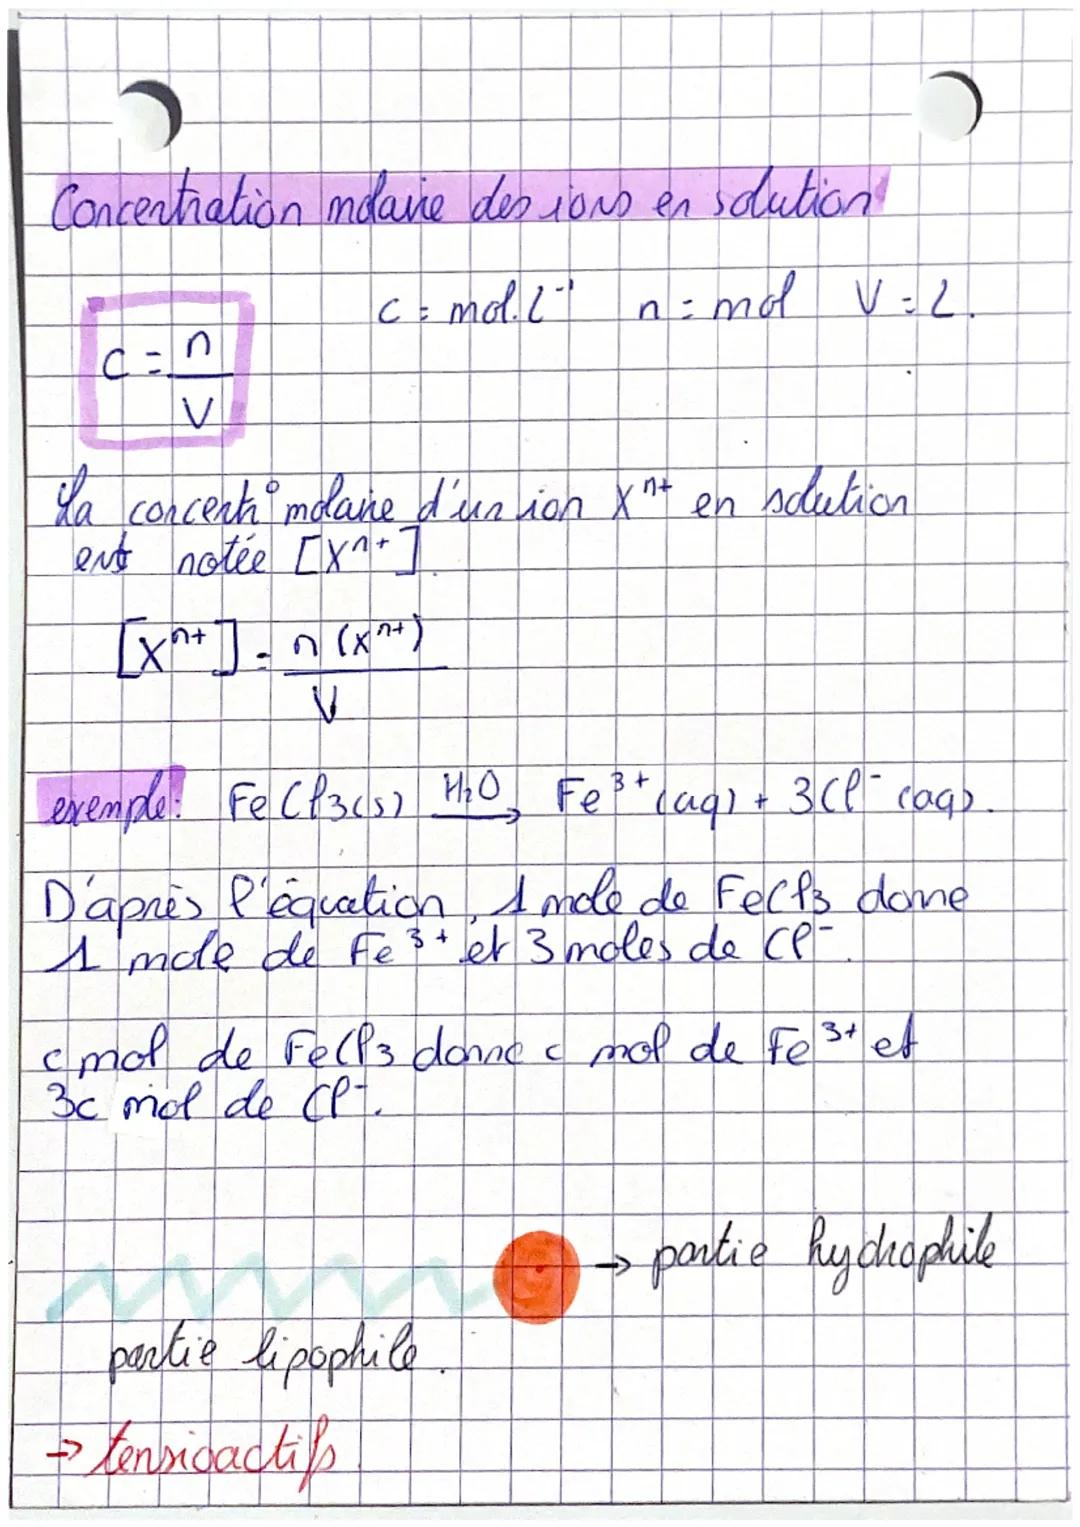 Concentration molaire des ions en solution
c = mol.L⁻¹ n = mol V = L.
c = n/V
La concentr° molaire d'un ion Xⁿ⁺ en solution
est notée [Xⁿ⁺].
[Xⁿ⁺] = n(Xⁿ⁺)/V
exemple: FeCl3(s) H₂O→ Fe³⁺(aq) + 3Cl⁻(aq).
D'après l'équation, 1 mole de FeCl3 donne
1 mole de Fe³⁺ et 3 moles de Cl⁻.
c mol de FeCl3 donne c mol de Fe³⁺ et
3c mol de Cl⁻.
→ partie hydrophile
partie lipophile.
→ tensioactifs